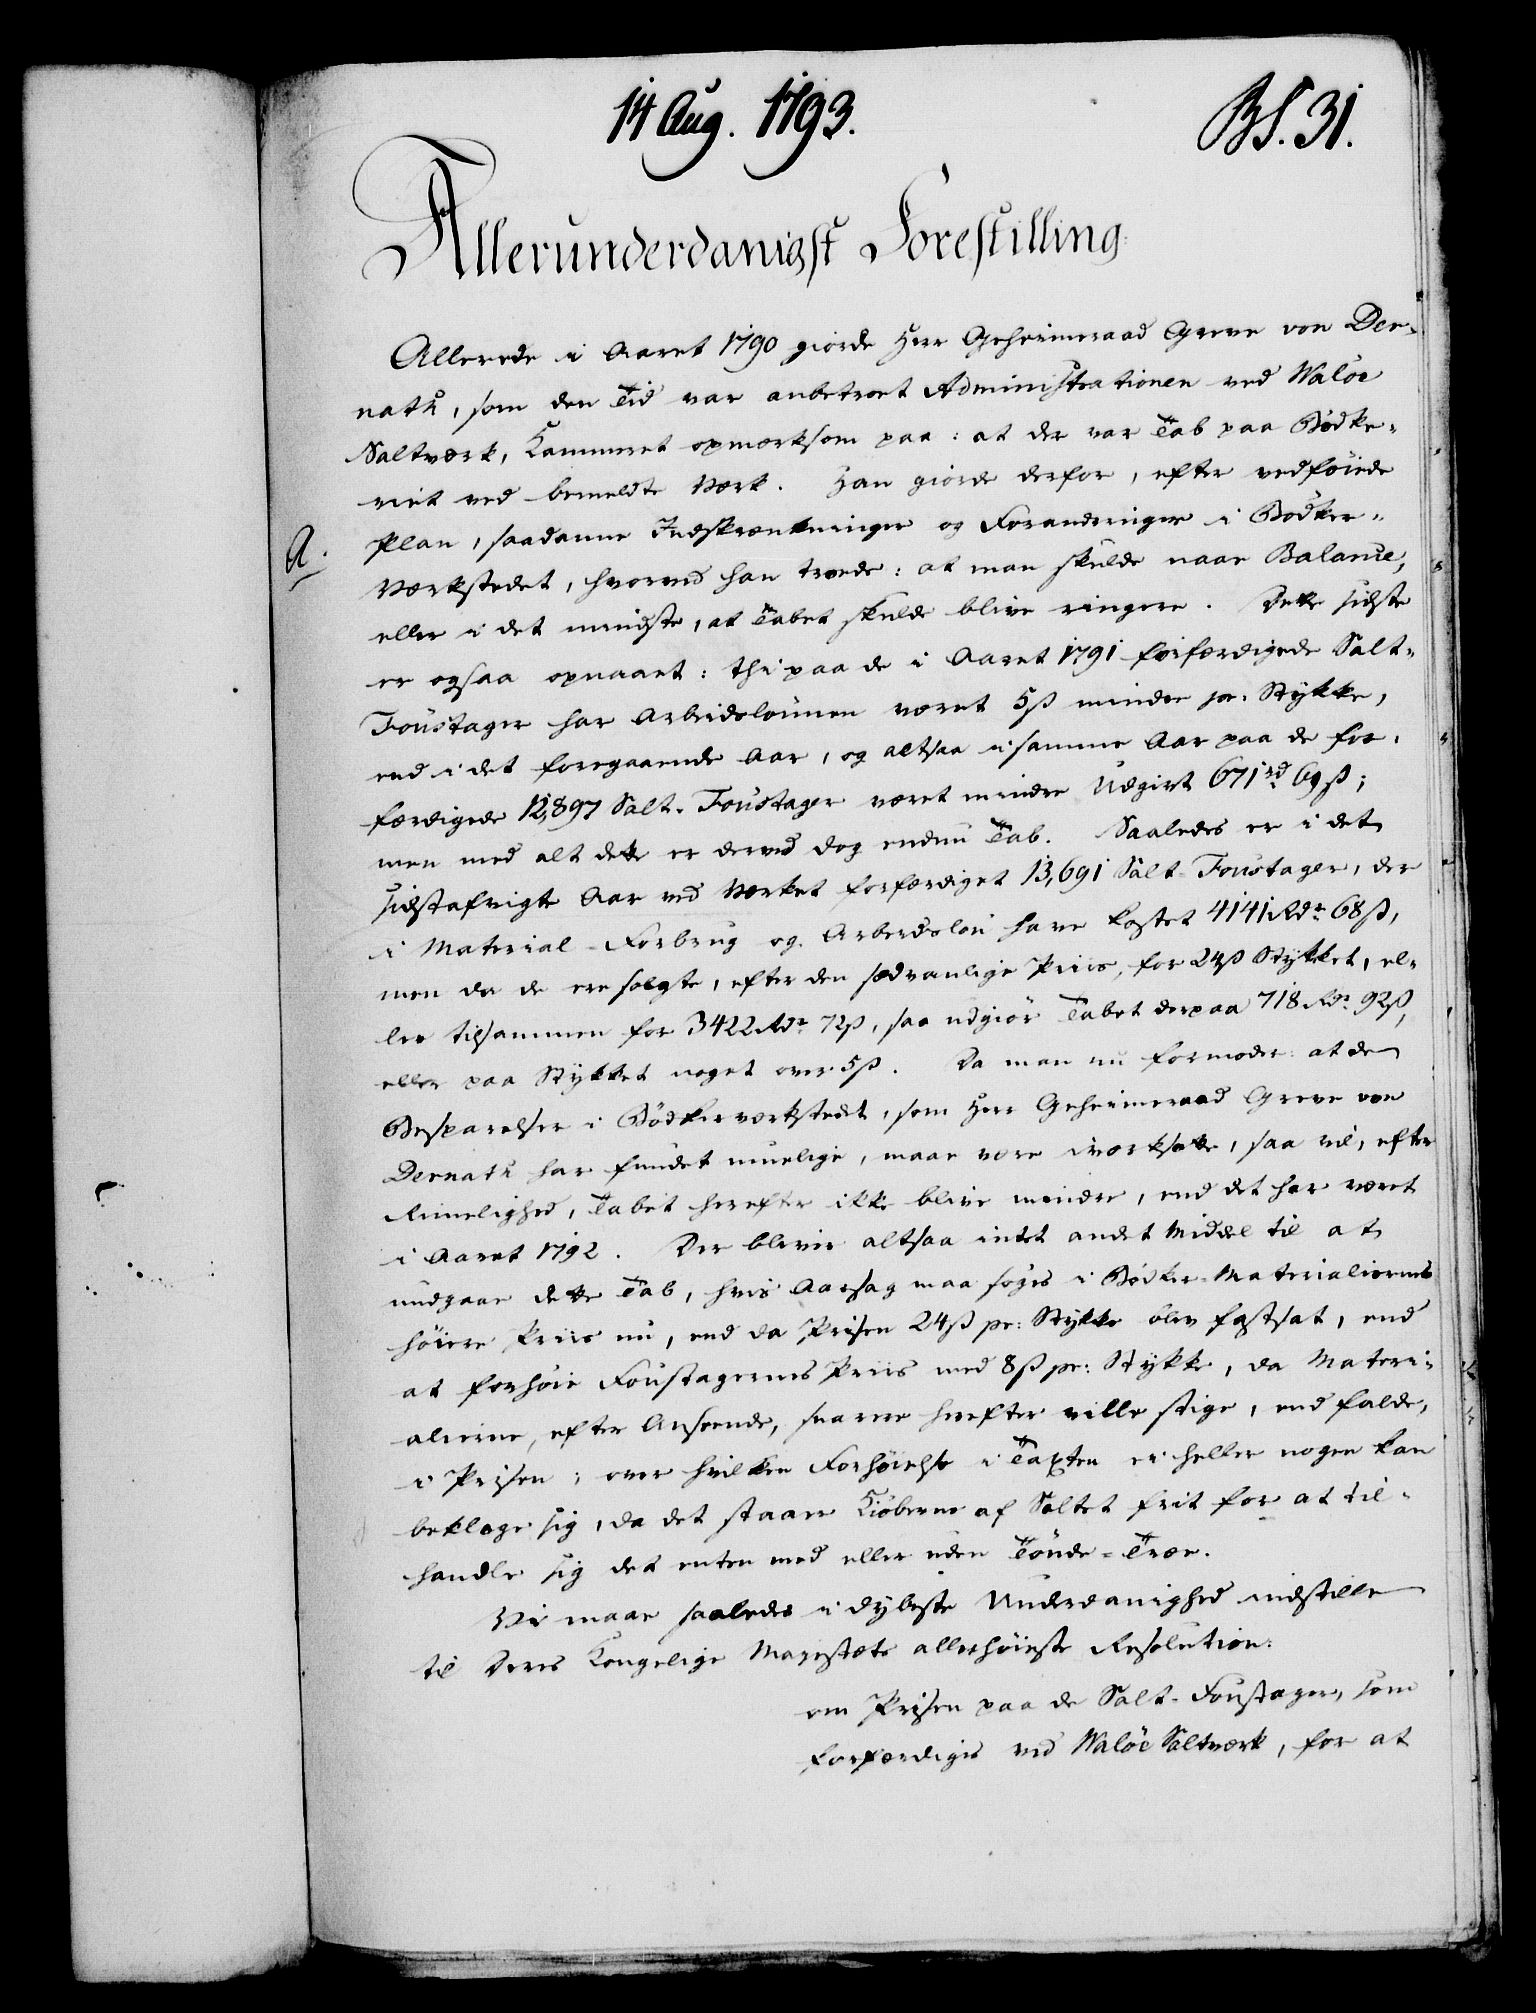 14 Aug. 1793.
Bl. 31.
Allerunderdanigst Forestilling.
Allerede i Aaret 1790 giorde Herr Geheimeraad Greve von Der-
nath, som den Tid var anbetroet Administrationen ved Waløe
Saltværk, Kammeret opmærksom paa: at der var Tab paa Bødke-
riet ved bemeldte Værk. Han giorde derfor, efter vedføiede
A.
Plan, saadanne Indskrænkninger og Forandringer i Bødker-
Værkstedet, hvorved han troede: at man skulde naae Balance,
eller i det mindste, at Tabet skulde blive ringere. Dette sidste
er ogsaa opnaaet: thi paa de i Aaret 1791 forfærdigede Salt-
Foustager har Arbeidslønnen været 5 ß mindre pr. Stykke,
end i det foregaaende Aar, og altsaa i samme Aar paa de for-
færdigede 12,897 Salt-Foustager været mindre Udgivt 671 rd 69 ß;
men med alt dette er derved dog endnu Tab. Saaledes er i det
sidstafvigte Aar ved Værket forfærdiget 13,691 Salt-Foustager, der
i Material-Forbrug og Arbeidsløn have kostet 4141 Rdr 68 ß,
men da de ere solgte, efter den sædvanlige Priis, for 24 ß Stykket, el-
ler tilsammen for 3422 Rdr 72 ß, saa udgiør Tabet derpaa 718 Rdr 92 ß,
eller paa Stykket noget over 5 ß. Da man nu formoder: at de
Besparelser i Bødkerværkstedet, som Herr Geheimeraad Greve von
Dernath har fundet muelige, maae være iværksatte, saa vil, efter
Rimelighed, Tabet herefter ikke blive mindre, end det har været
i Aaret 1792. Der bliver altsaa intet andet Middel til at
undgaae dette Tab, hvis Aarsag maa søges i Bødker-Materialiernes
høiere Priis nu, end da Prisen 24 ß pr: Stykke blev fastsat, end
at forhøie Foustagernes Priis med 8 ß pr: Stykke, da Materi-
alierne, efter Anseende, snarere herefter ville stige, end falde,
i Prisen; over hvilken Forhøielse i Taxten ei heller nogen kan
beklage sig, da det staaer Kiøberne af Saltet frit for at til-
handle sig det enten med eller uden Tønde-Træe.
Vi maae saaledes i dybeste Underdanighed indstille
til Deres Kongelige Majestæts allerhøieste Resolution:
om Prisen paa de Salt-Foustager, som
forfærdiges ved Waløe Saltværk, for at